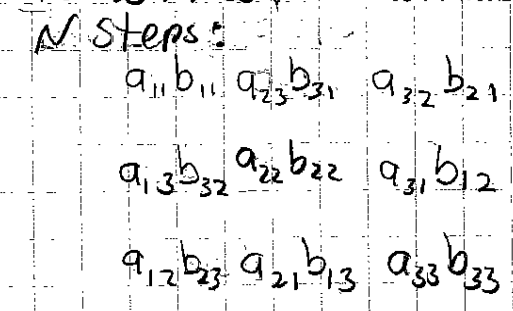 N steps:
a₁₁b₁₁ a₂₃b₃₁ a₃₂b₂₁
a₁₃b₃₂ a₂₂b₂₂ a₃₁b₁₂
a₁₂b₂₃ a₂₁b₁₃ a₃₃b₃₃